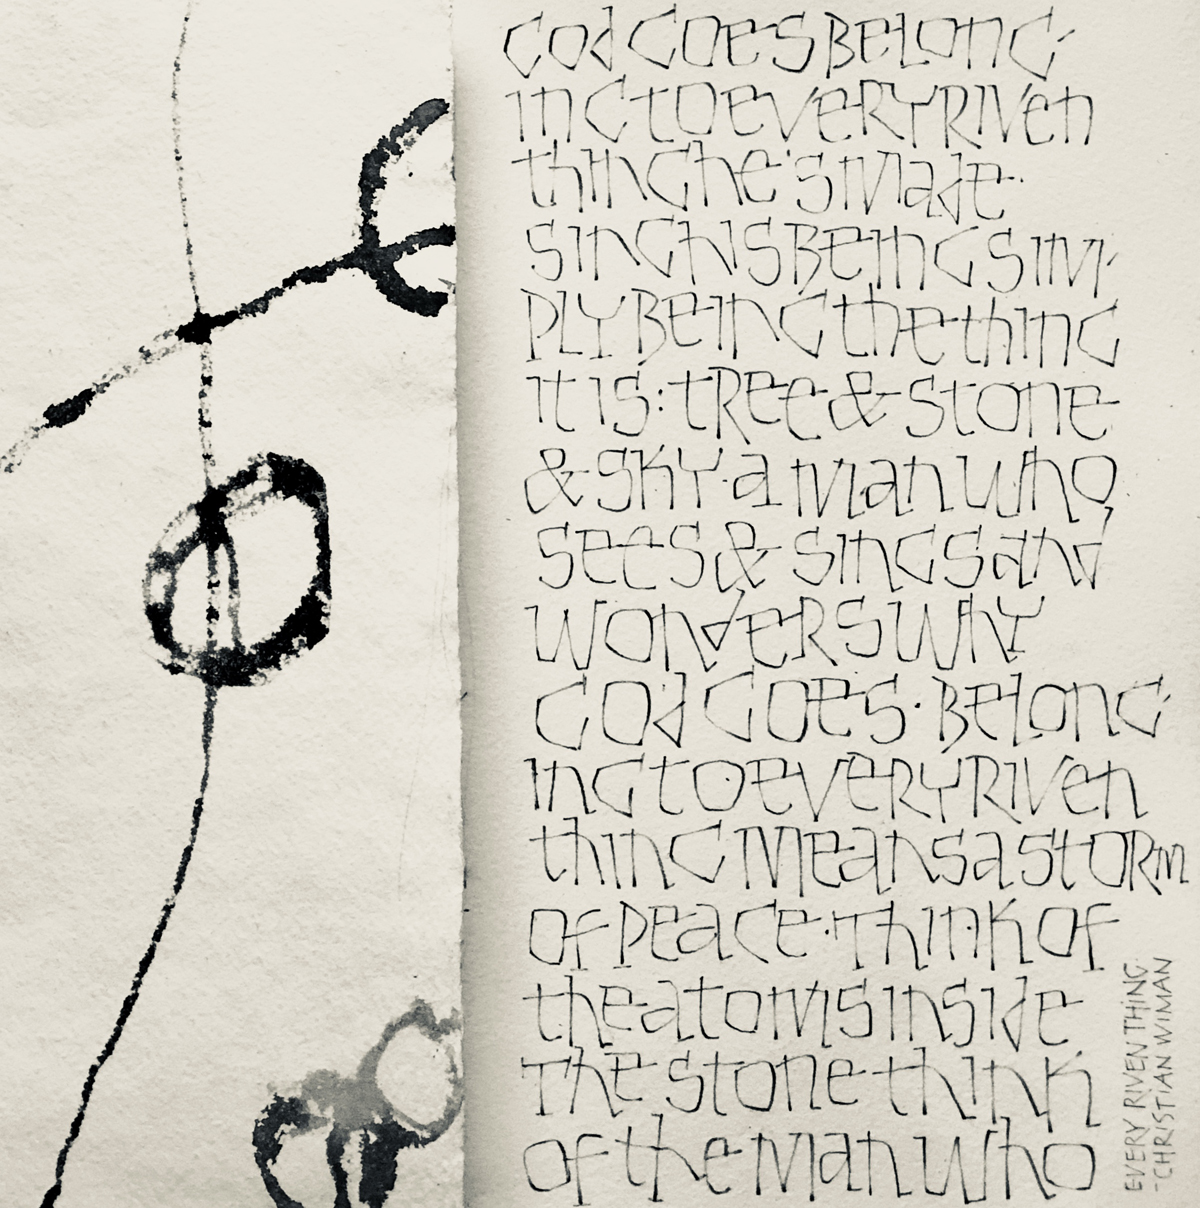 God GOES BELONG-
ING tO EVERY RIVEN
thING he's Made.
SING hIS BEING SIM-
PLY BEING the thING
It IS: tREE & StONE
& SKY. a Man Who
SEES & SINGS and
WONdERS WhY
God GOES. BELONG-
ING tO EVERY RIVEN
thING MEaNS a StORM
Of PEaCE. ThINK Of
the atOMS INSIdE
The StONE. thINK
Of the Man Who
EVERY RIVEN THING.
-CHRISTIAN WIMAN